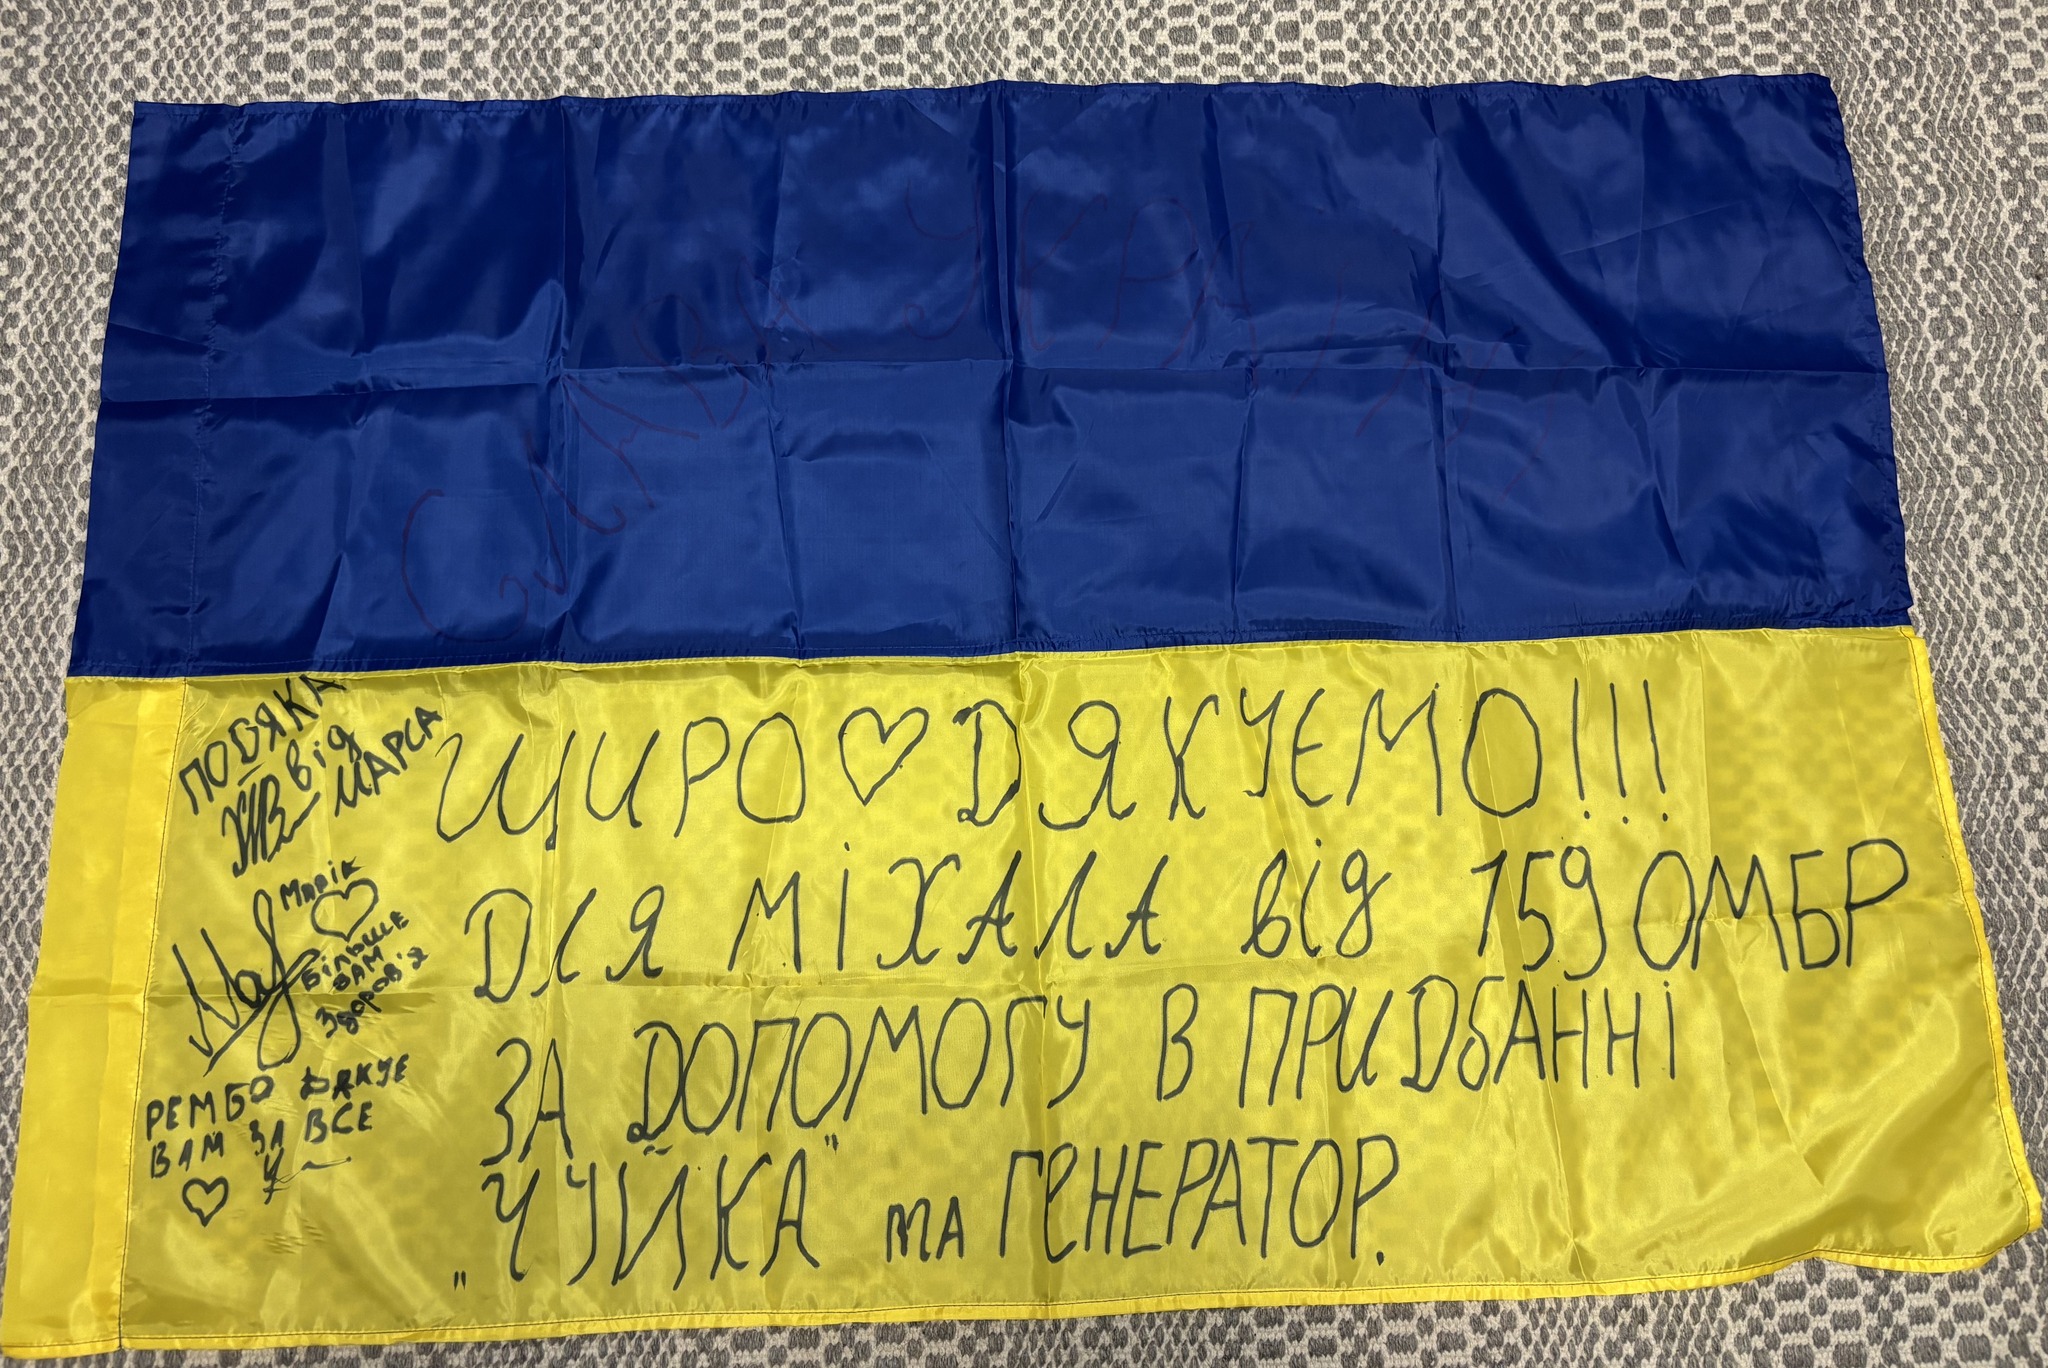 СЛАВА УКРАЇНІ
ПОДЯКА
від
МАРСА
Малік
БІЛЬШЕ
ВАМ
Здоров'я
РЕМБО ДЯКУЄ
ВАМ ЗА ВСЕ
ЩИРО ДЯКУЄМО!!!
ДЛЯ МІХАЛА від 159 ОМБР
ЗА ДОПОМОГУ В ПРИДБАННІ
"ЧУЙКА" та ГЕНЕРАТОР.